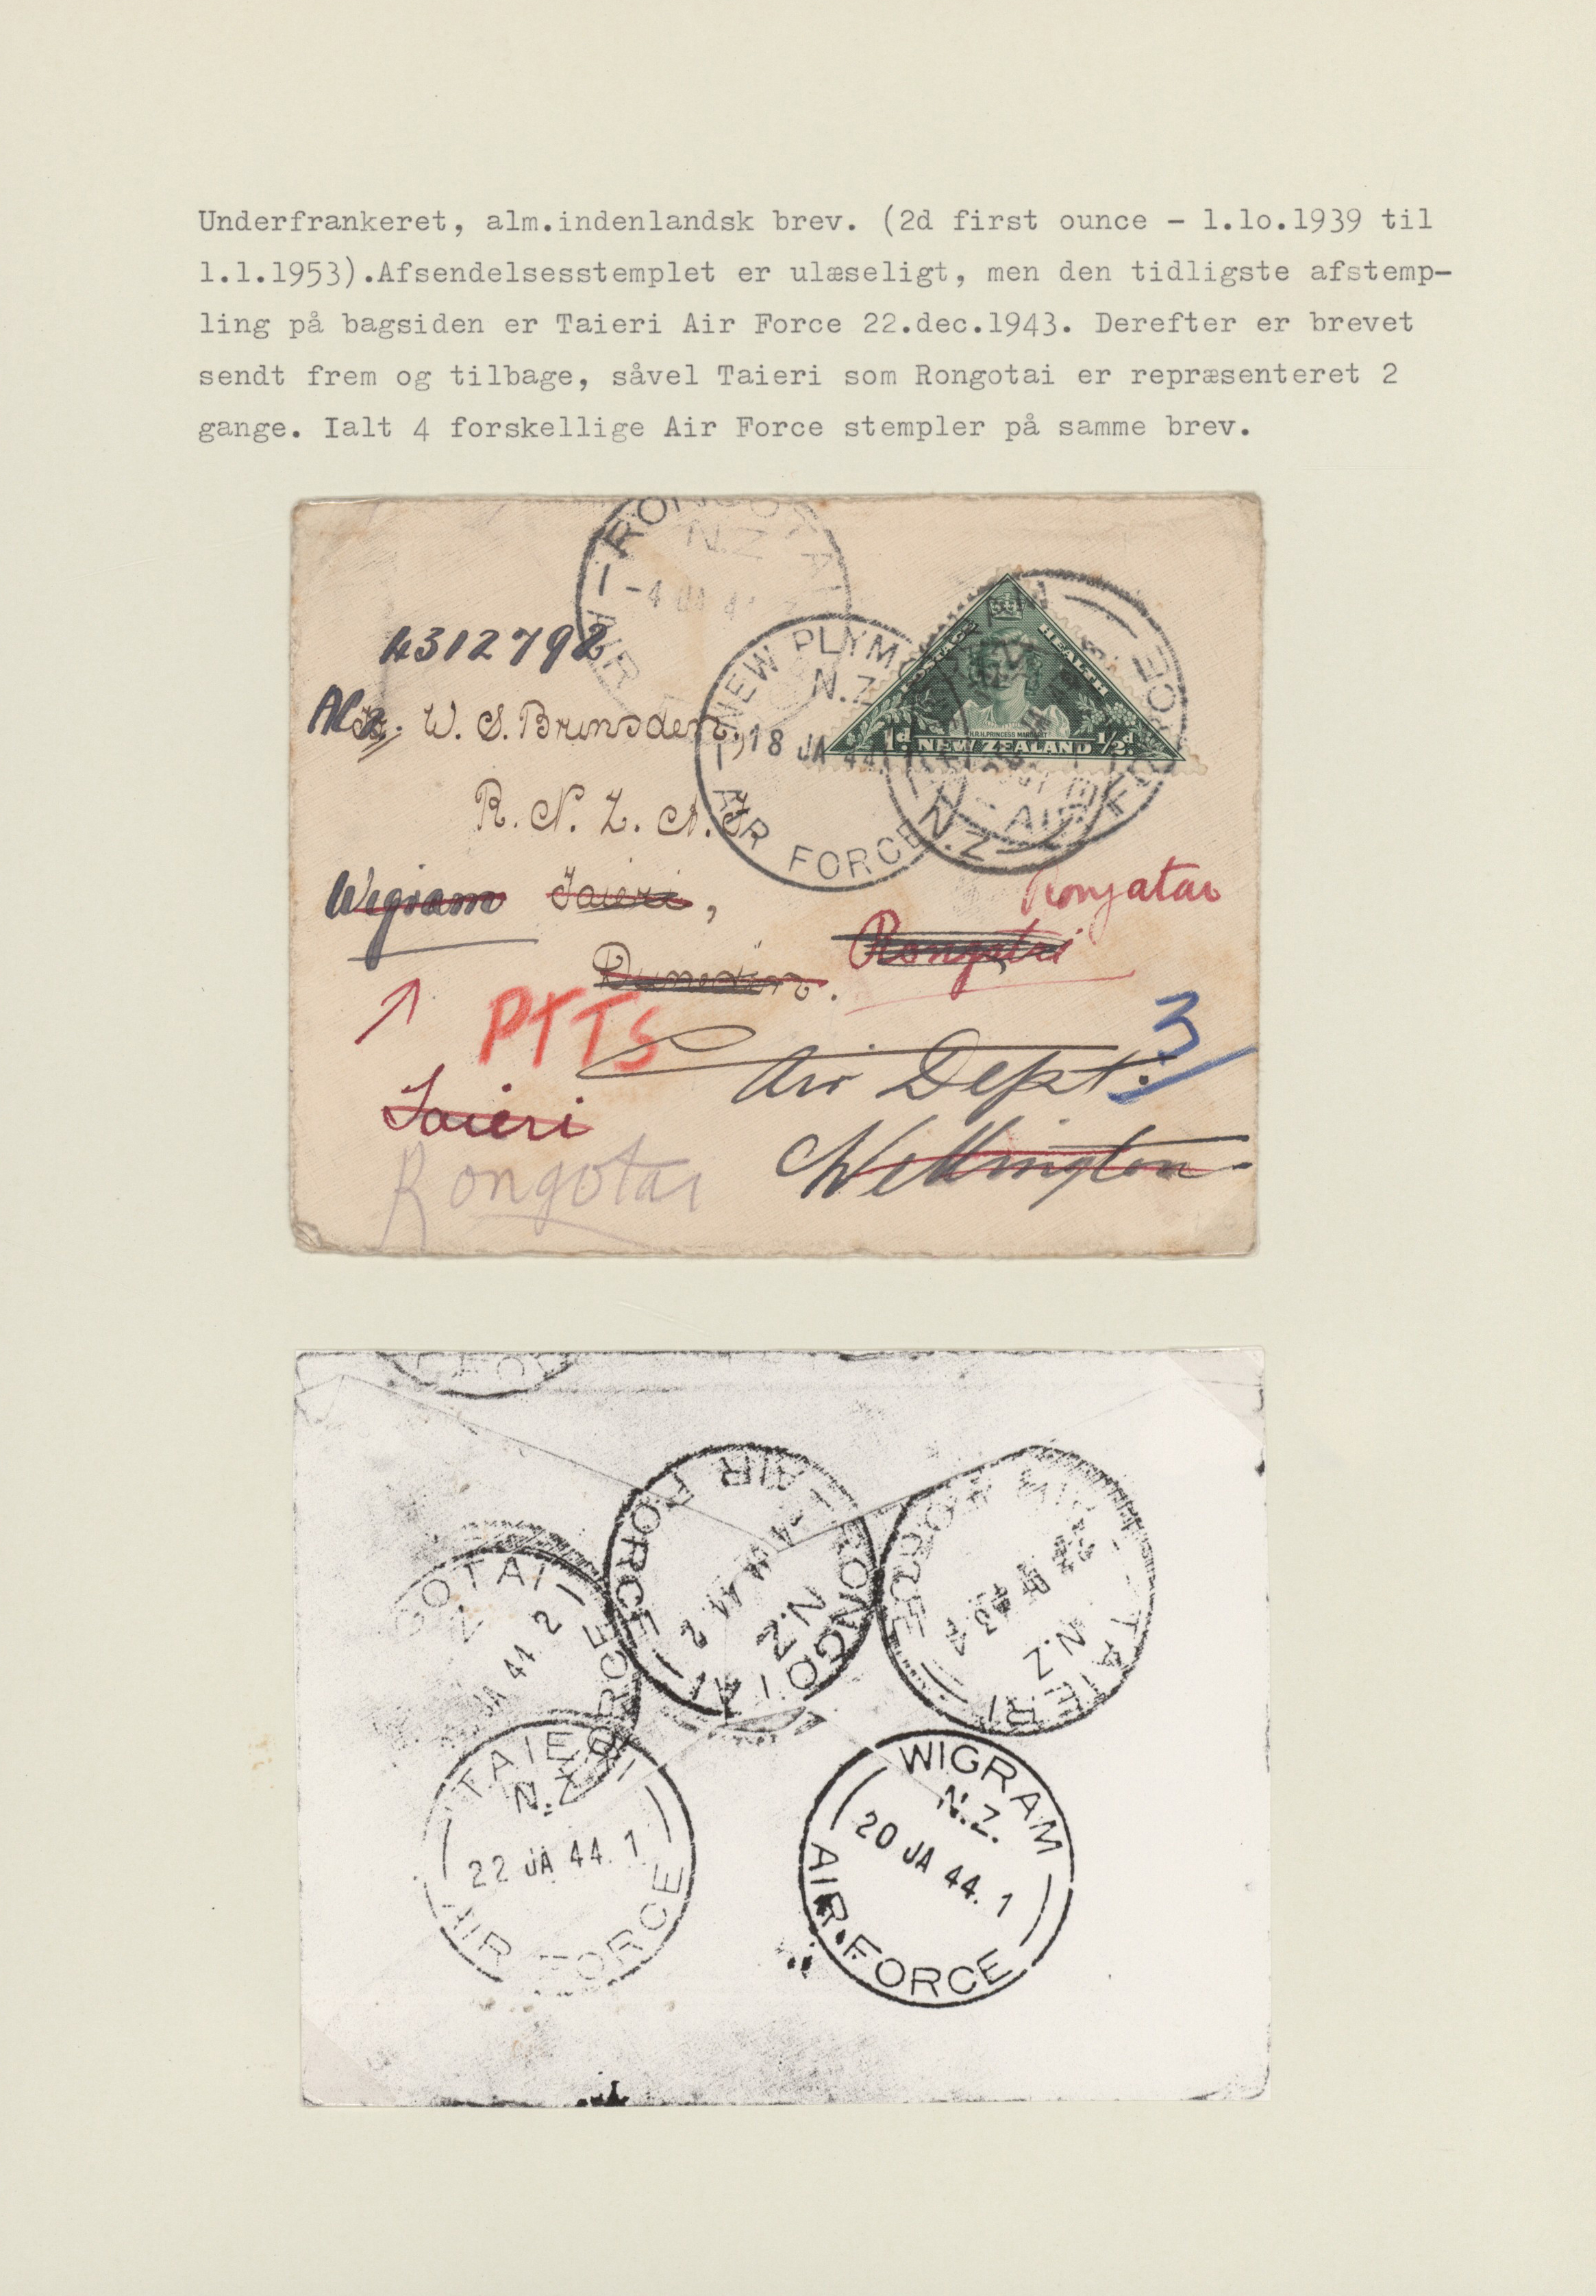 Underfrankeret, alm.indenlandsk brev. (2d first ounce - 1.1o.1939 til
1.1.1953).Afsendelsesstemplet er ulæseligt, men den tidligste afstemp-
ling på bagsiden er Taieri Air Force 22.dec.1943. Derefter er brevet
sendt frem og tilbage, såvel Taieri som Rongotai er repræsenteret 2
gange. Ialt 4 forskellige Air Force stempler på samme brev.
N.Z
-4 JA 4
AIR
4312792
NEW PLYM
N.Z
18 JA 44
AIR FORCE
POSTAGE HEALTH
H.R.H. PRINCESS MARGARET
1d NEW ZEALAND 1/2d
N.Z
AIR FORCE
W. S. Brinsden,
R. N. Z. A. F
Wigram Taieri,
Rongatai
Rongotai
Dunedin.
PTTS
3
Air Dept.
Taieri
Wellington
Rongotai
GOTAI
JA 44 2
ORCE
AIR FORCE
-4 JA 44 2
N.Z
RONGOTAI
AIR FORCE
N.Z
TAIERI
TAIE
N.Z
22 JA 44. 1
AIR FORCE
WIGRAM
N.Z.
20 JA 44. 1
AIR FORCE